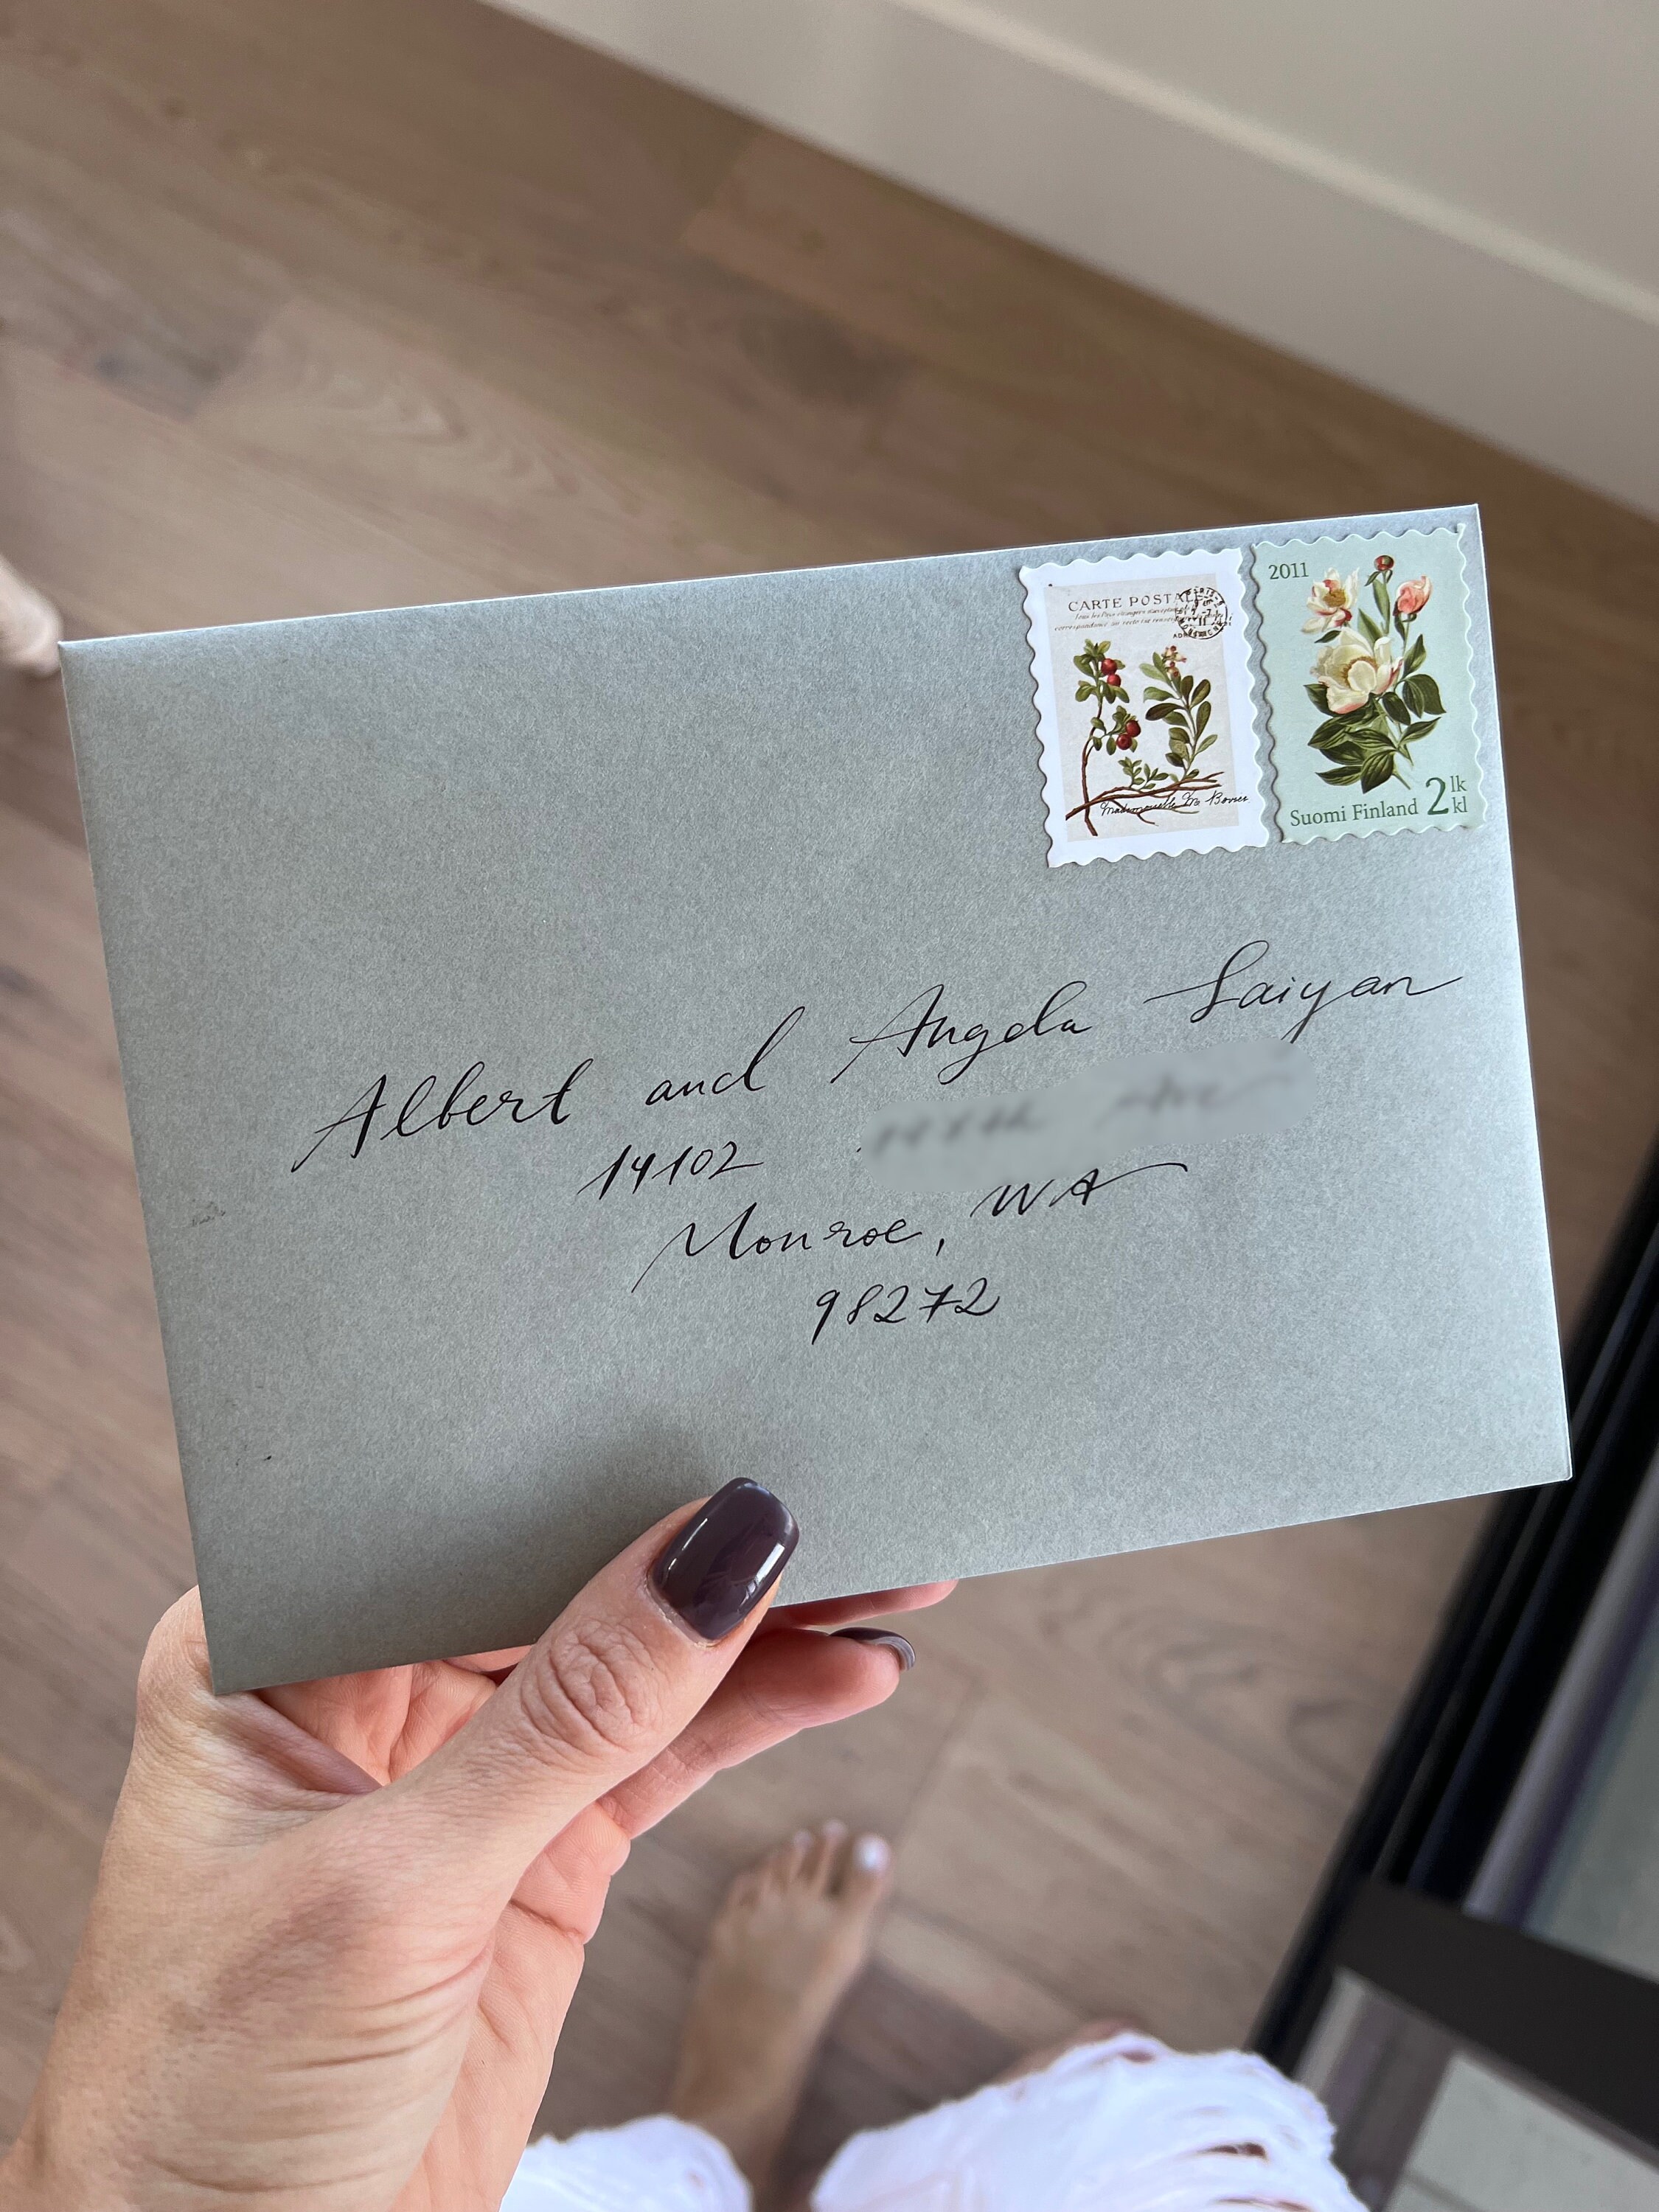 CARTE POSTALE
2011
Suomi Finland 2 lk
kl
Albert and Angela Saiyan
14102
Monroe, WA
98272